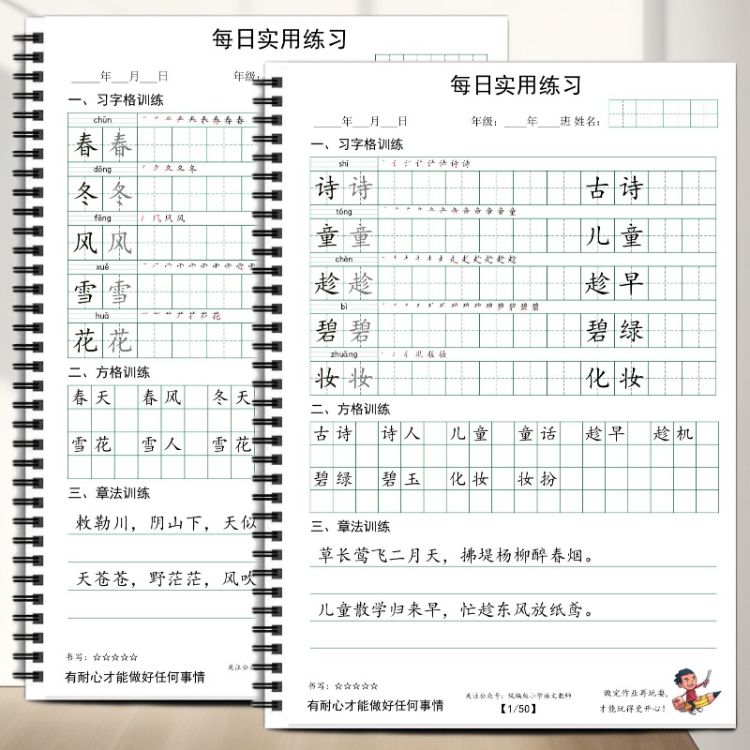 每日实用练习
____年___月___日 年级:
一、习字格训练
chūn
春 春
dōng
冬 冬
fēng
风 风
xuě
雪 雪
huā
花 花
二、方格训练
春天 春风 冬天
雪花 雪人 雪花
三、章法训练
敕勒川，阴山下，天似
天苍苍，野茫茫，风吹
书写：☆☆☆☆☆
有耐心才能做好任何事情
关注公众
每日实用练习
____年___月___日 年级：____年___班 姓名：
一、习字格训练
shī
诗 诗 古诗
tóng
童 童 儿童
chèn
趁 趁 趁早
bì
碧 碧 碧绿
zhuāng
妆 妆 化妆
二、方格训练
古诗 诗人 儿童 童话 趁早 趁机
碧绿 碧玉 化妆 妆扮
三、章法训练
草长莺飞二月天，拂堤杨柳醉春烟。
儿童散学归来早，忙趁东风放纸鸢。
书写：☆☆☆☆☆
有耐心才能做好任何事情
关注公众号：统编版小学语文教师
【1/50】
做完作业再玩耍，
才能玩得更开心！